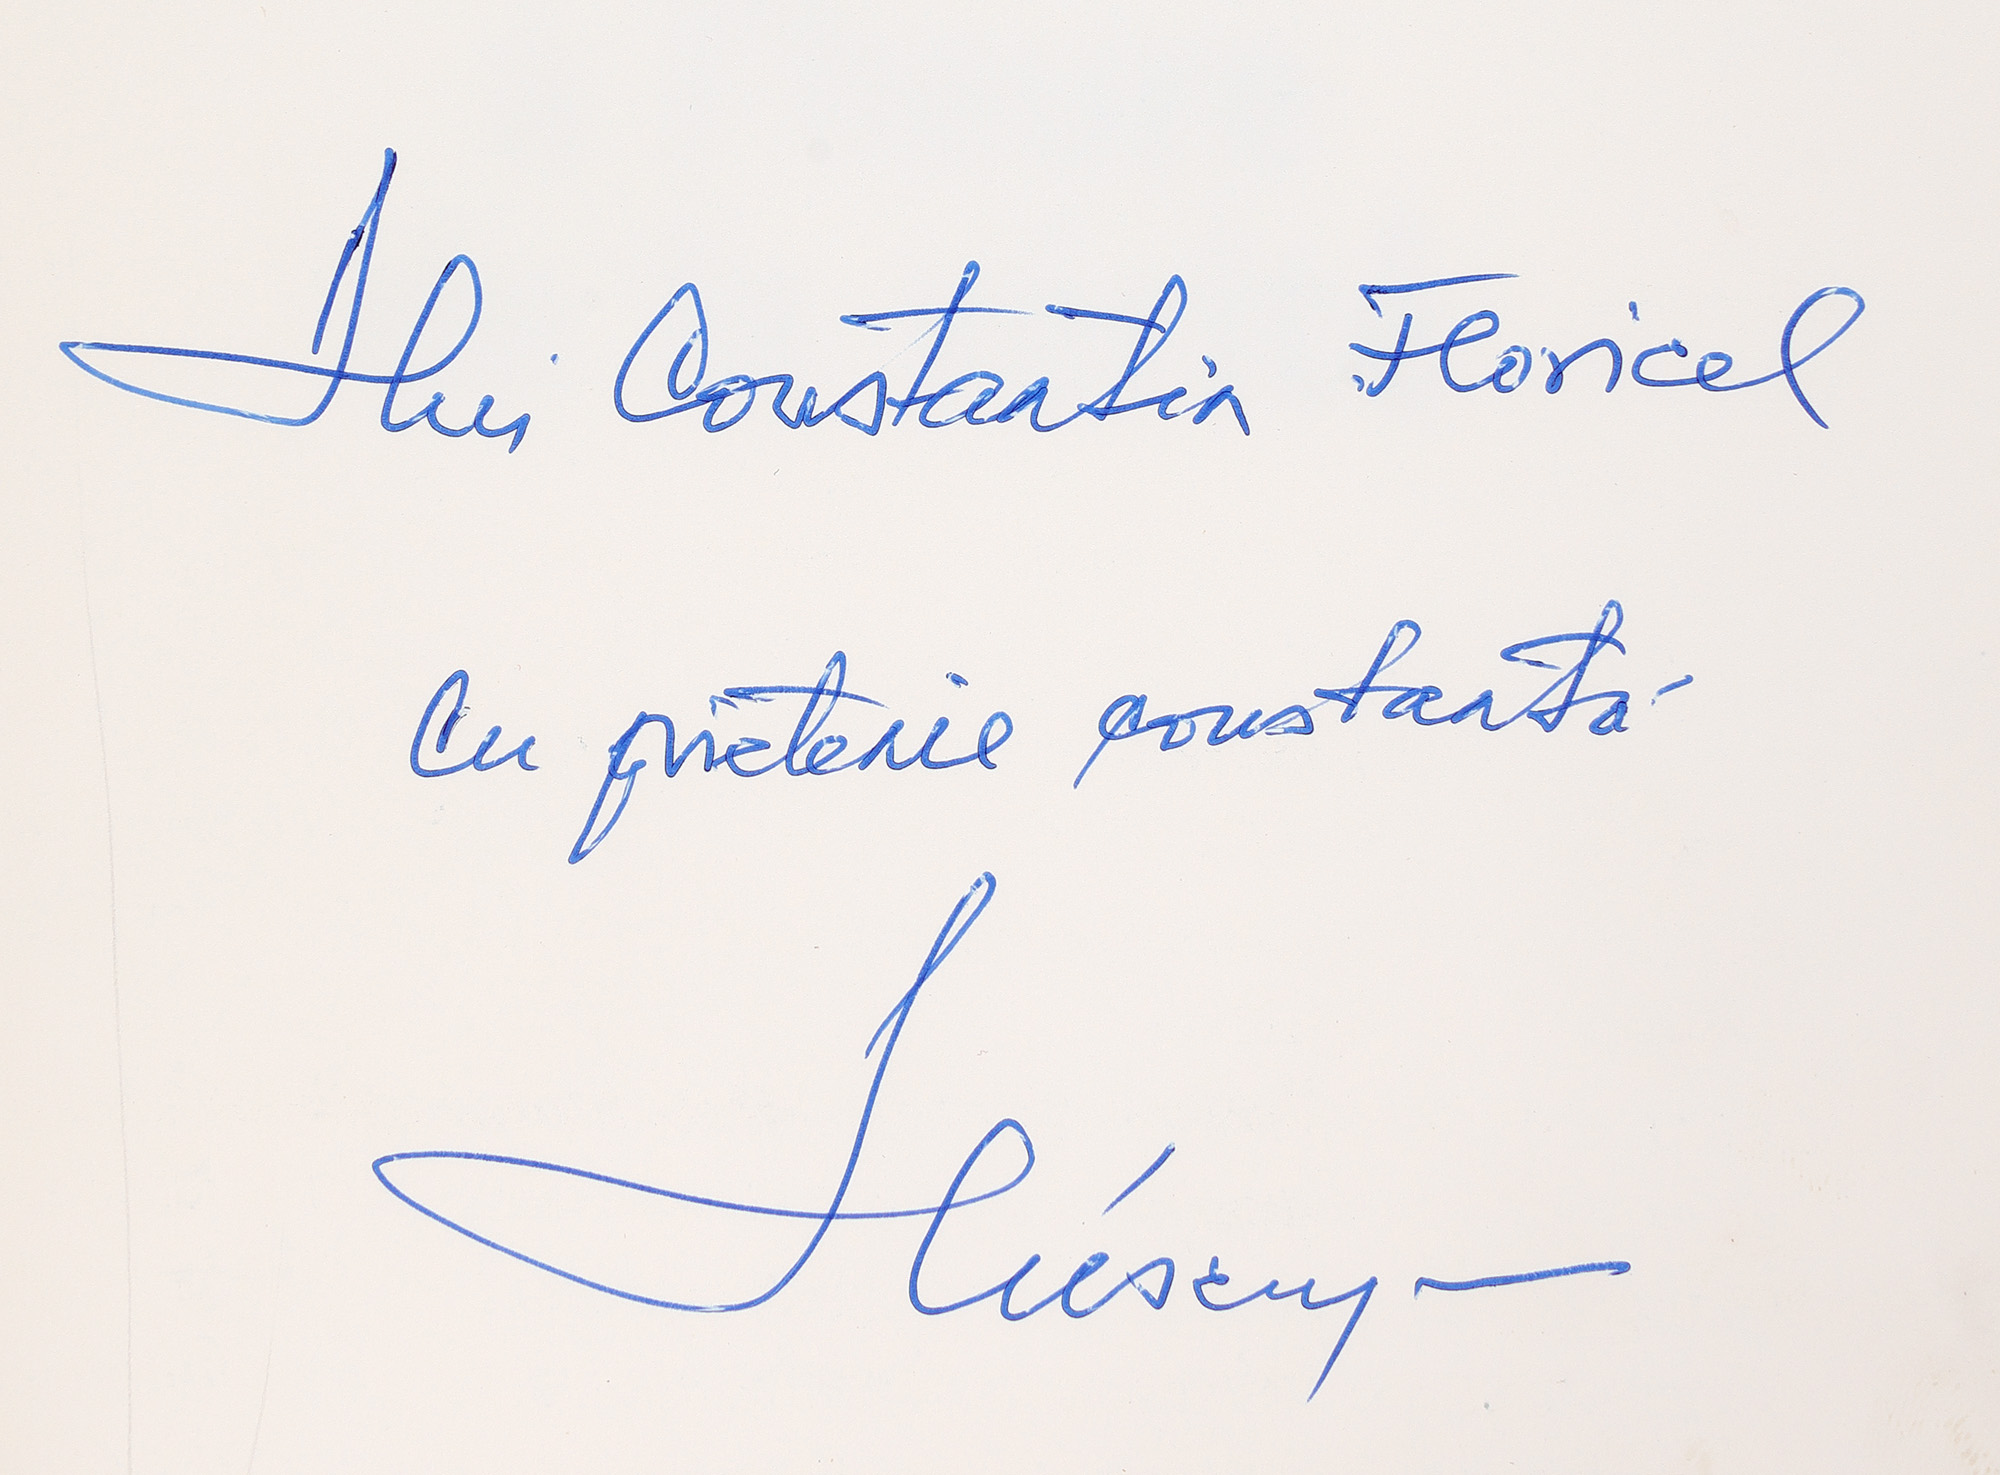 Dlui Constantin Floricel
Cu prietenie constantă
Iliescu